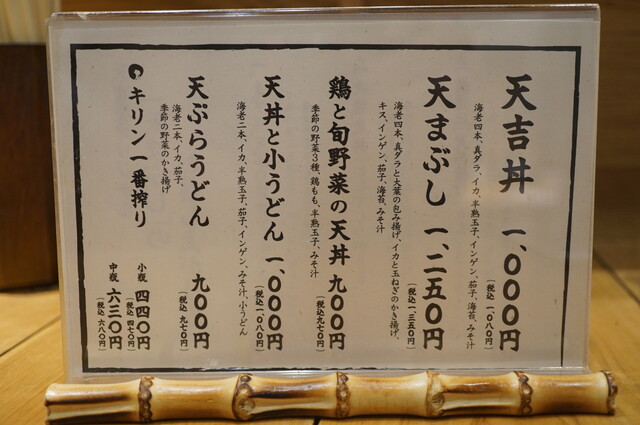 天吉丼 一、〇〇〇円
（税込 一、〇八〇円）
海老四本、真ダラ、イカ、半熟玉子、インゲン、茄子、海苔、みそ汁
天まぶし 一、二五〇円
（税込 一、三五〇円）
海老四本、真ダラと大葉の包み揚げ、イカと玉ねぎのかき揚げ、
キス、インゲン、茄子、海苔、みそ汁
鶏と旬野菜の天丼 九〇〇円
（税込 九七〇円）
季節の野菜３種、鶏もも、半熟玉子、みそ汁
天丼と小うどん 一、〇〇〇円
（税込 一、〇八〇円）
海老二本、イカ、半熟玉子、茄子、インゲン、みそ汁、小うどん
天ぷらうどん 九〇〇円
（税込 九七〇円）
海老二本、イカ、茄子、
季節の野菜のかき揚げ
キリン一番搾り
小瓶 四四〇円
（税込 四七〇円）
中瓶 六三〇円
（税込 六八〇円）